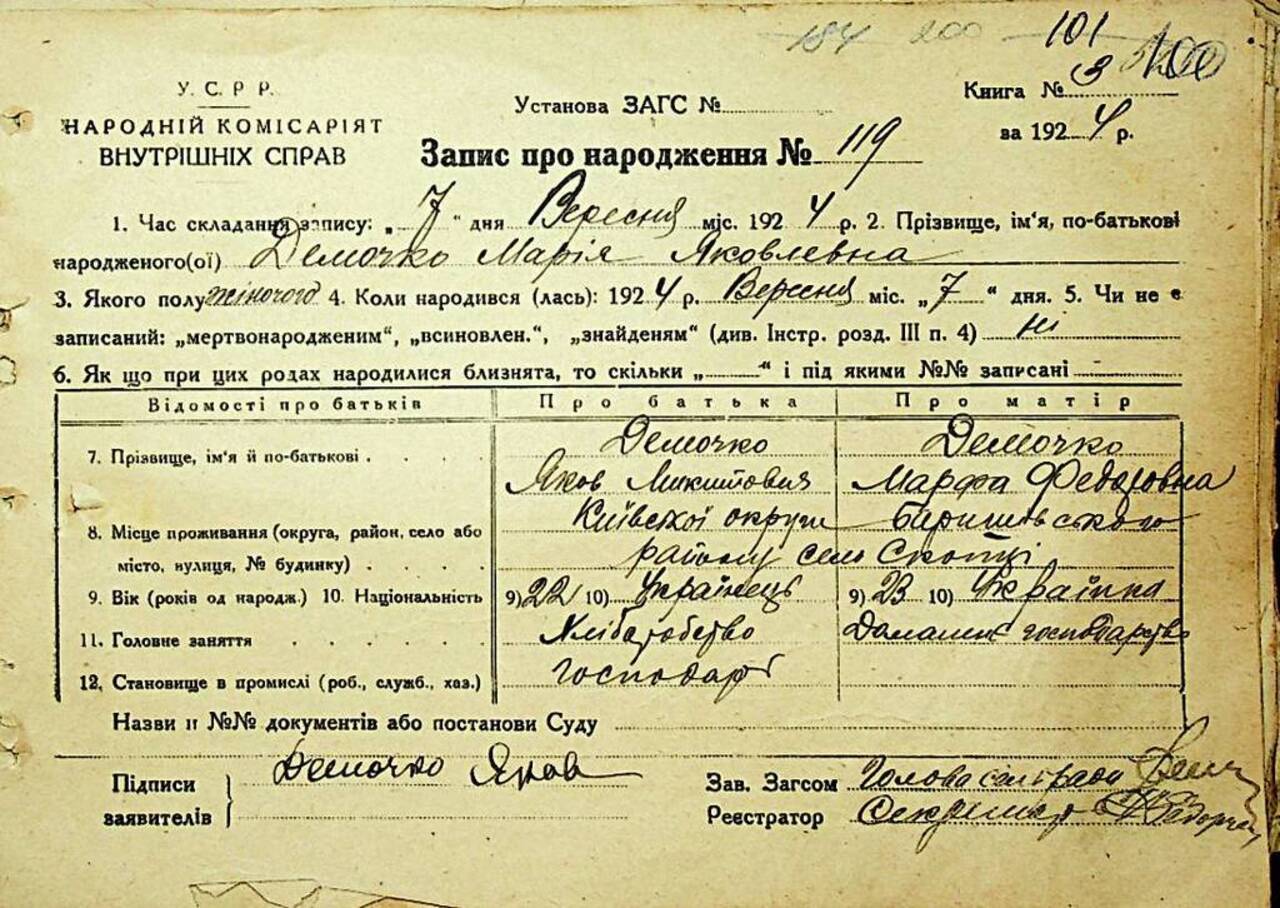 184 200 101
У. С. Р. Р.
НАРОДНІЙ КОМІСАРІЯТ
ВНУТРІШНІХ СПРАВ
Установа ЗАГС №
Книга № 3 100
за 1924 р.
Запис про народження № 119
1. Час складання запису: „7“ дня Вересня міс. 1924 р. 2. Прізвище, ім'я, по-батькові
народженого(ої) Демочко Марія Яковлевна
3. Якого полу жіночого 4. Коли народився (лась): 1924 р. Вересня міс. „7“ дня. 5. Чи не є
записаний: „мертвонародженим“, „всиновлен.“, „знайденям“ (див. Інстр. розд. III п. 4) ні
6. Як що при цих родах народилися близнята, то скільки „ “ і під якими №№ записані
Відомості про батьків Про батька Про матір
7. Прізвище, ім'я й по-батькові . . . . Демочко Демочко
Яков Микитович Марфа Федоровна
8. Місце проживання (округа, район, село або Київскої округи Баришівського
місто, вулиця, № будинку) . . . . району село Скопці
9. Вік (років од народж.) 10. Національність 9) 22 10) Українець 9) 23 10) Українка
11. Головне заняття . . . . . Хліборобство Домашнє господарство
12. Становище в промислі (роб., служб., хаз.) господар
Назви и №№ документів або постанови Суду
Підписи Демочко Яков Зав. Загсом Голова сільради
заявителів Реєстратор Секретар